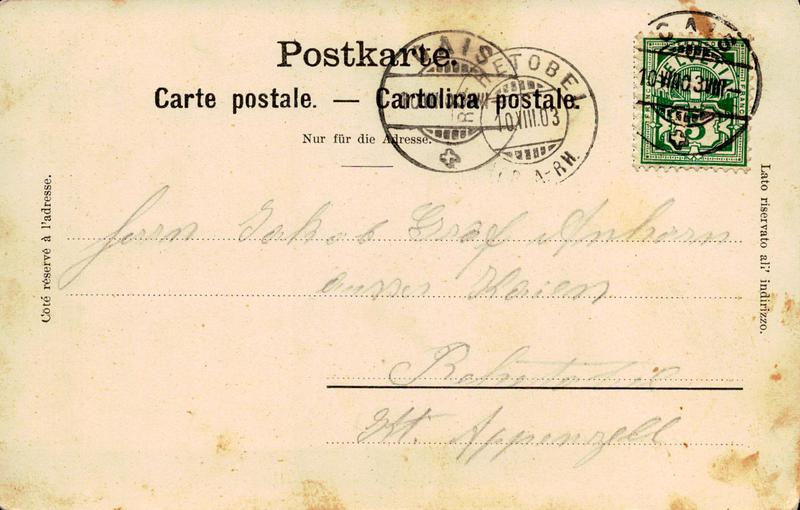 Postkarte.
Carte postale. — Cartolina postale.
Nur für die Adresse.
Côté réservé à l'adresse.
Lato riservato all' indirizzo.
HELVETIA
5
10.VIII.03
Herrn Jakob Graf Anhorn
ausser Kaien
Rehetobel
Kt. Appenzell